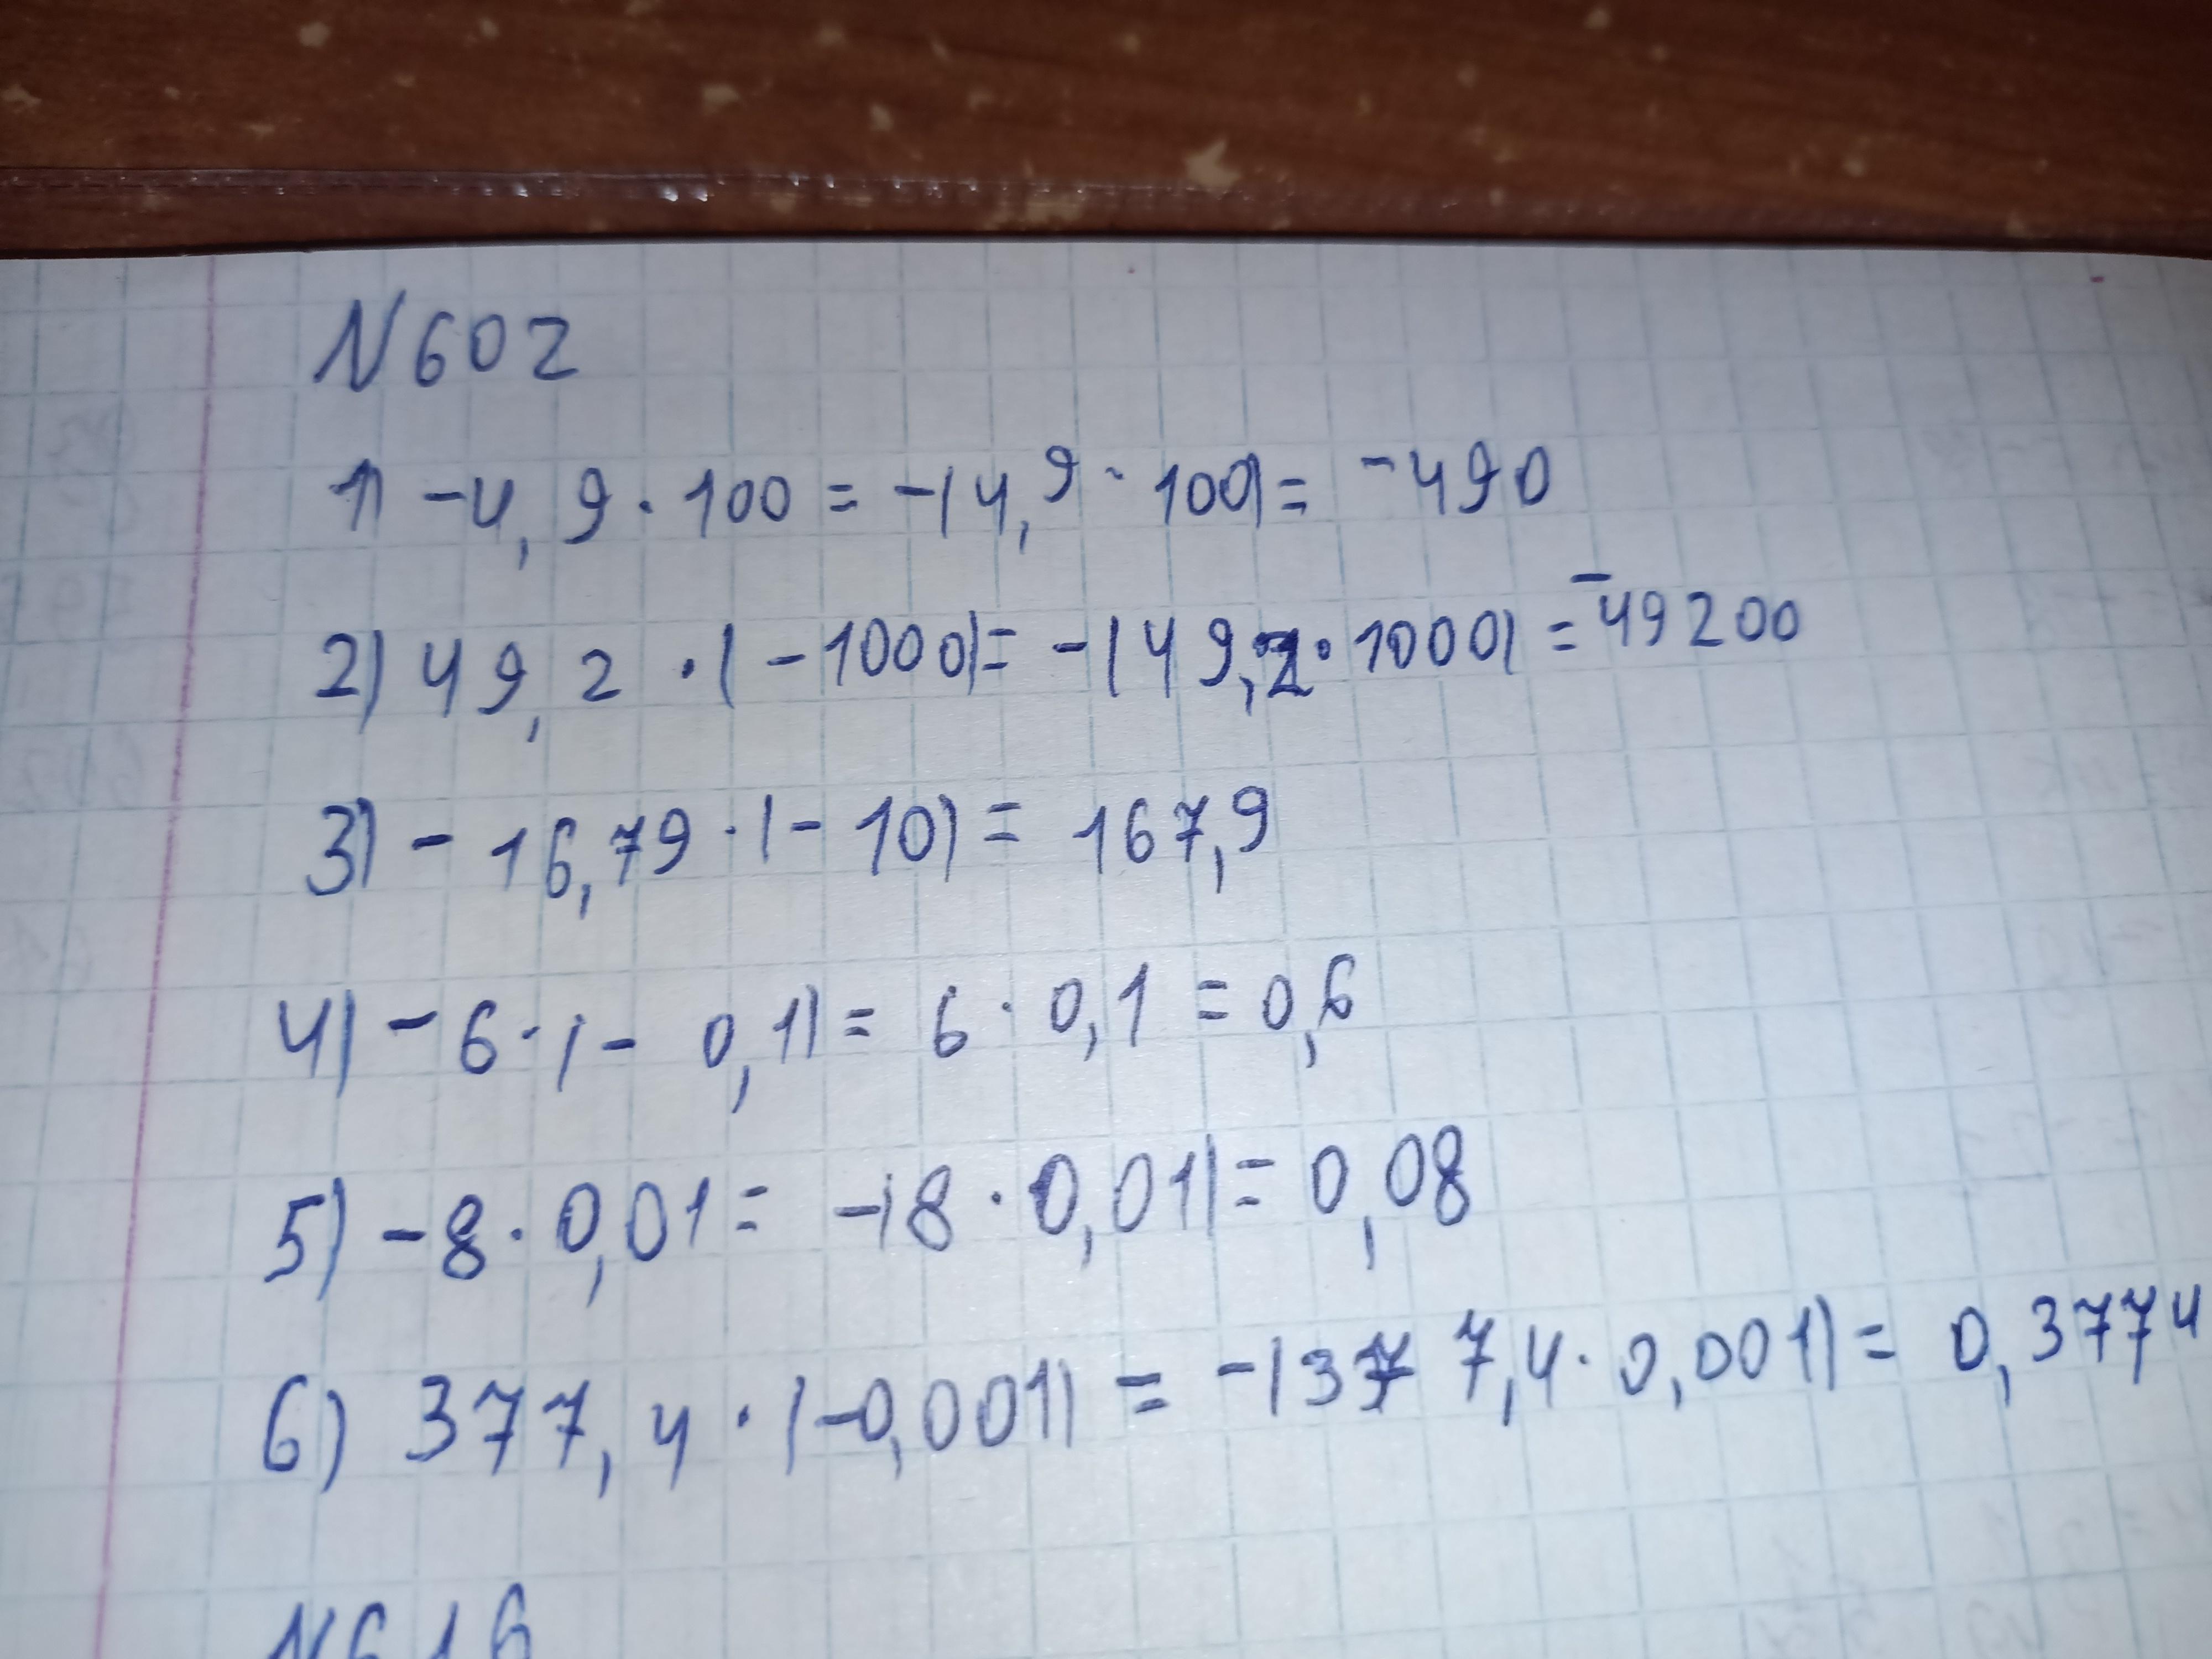 N 602
1) -4,9 · 100 = -(4,9 · 100) = -490
2) 49,2 · (-1000) = -(49,2 · 1000) = -49200
3) -16,79 · (-10) = 167,9
4) -6 · (-0,1) = 6 · 0,1 = 0,6
5) -8 · 0,01 = -(8 · 0,01) = 0,08
6) 377,4 · (-0,001) = -(377,4 · 0,001) = 0,3774